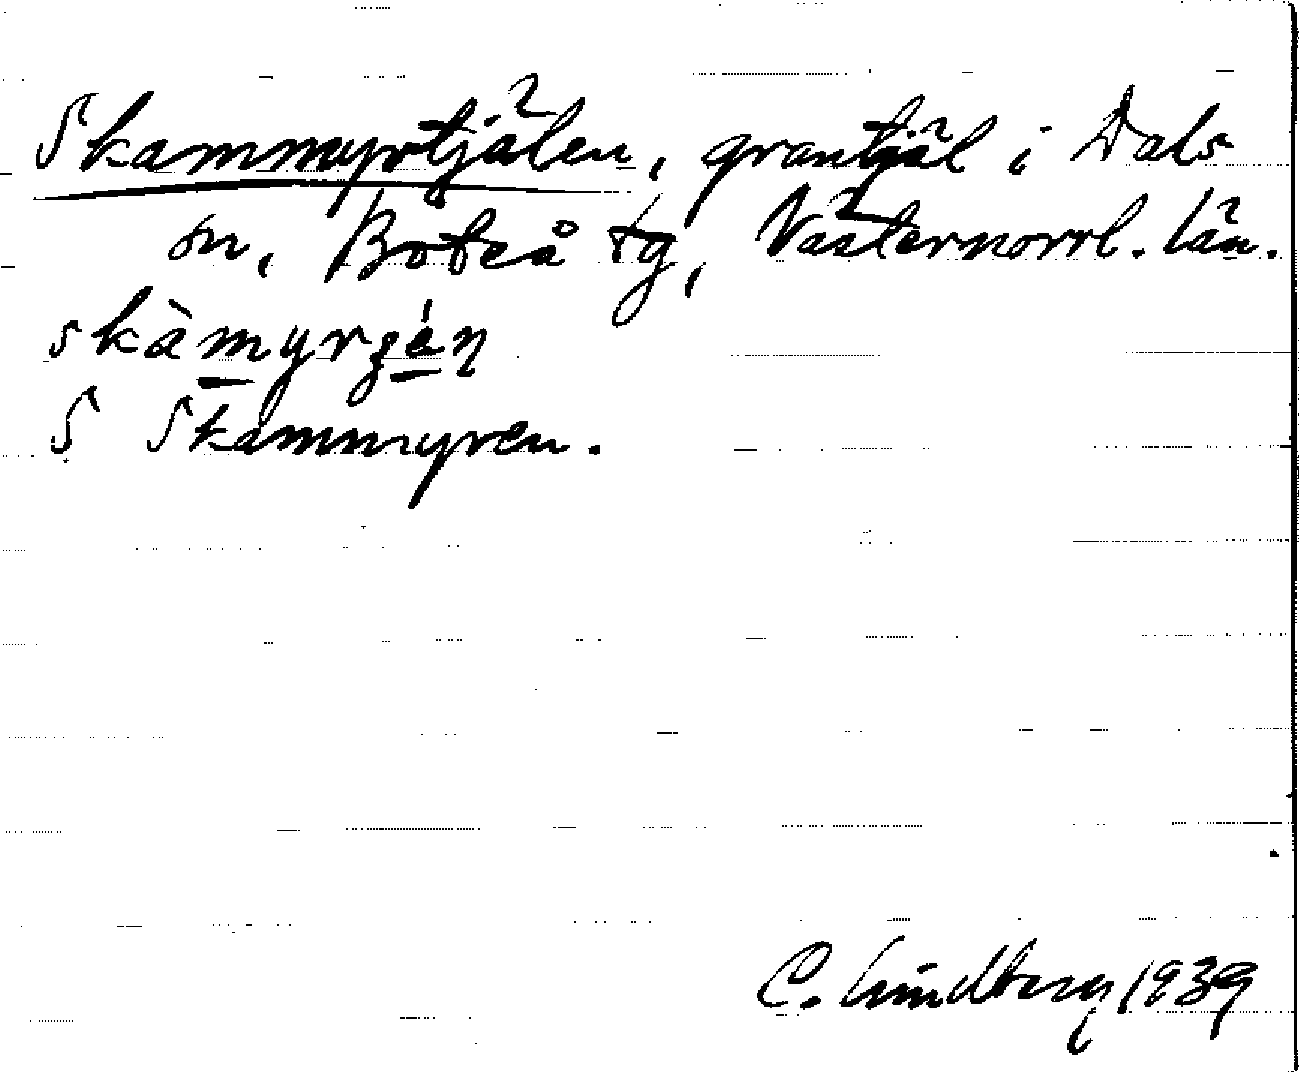 Skammyrtjälen, grantjäl i Dals
sn, Boteå tg, Västernorrl. län.
skàmyrʂén
S Skammyren.
C. Lindberg 1939